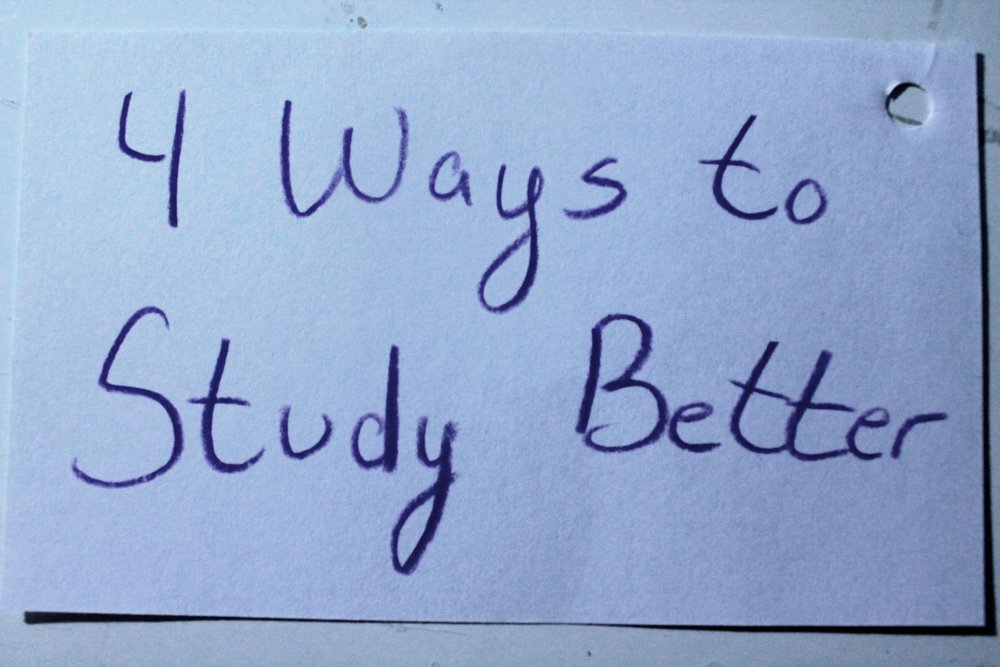 4 Ways to
Study Better